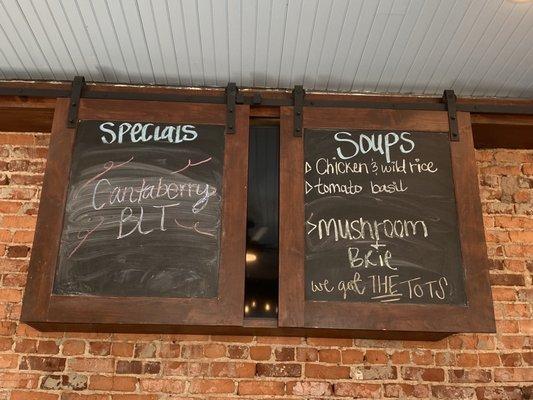 Specials
Cantaberry
BLT
Soups
Chicken & wild rice
tomato basil
mushroom
+
Brie
we got THE TOTS